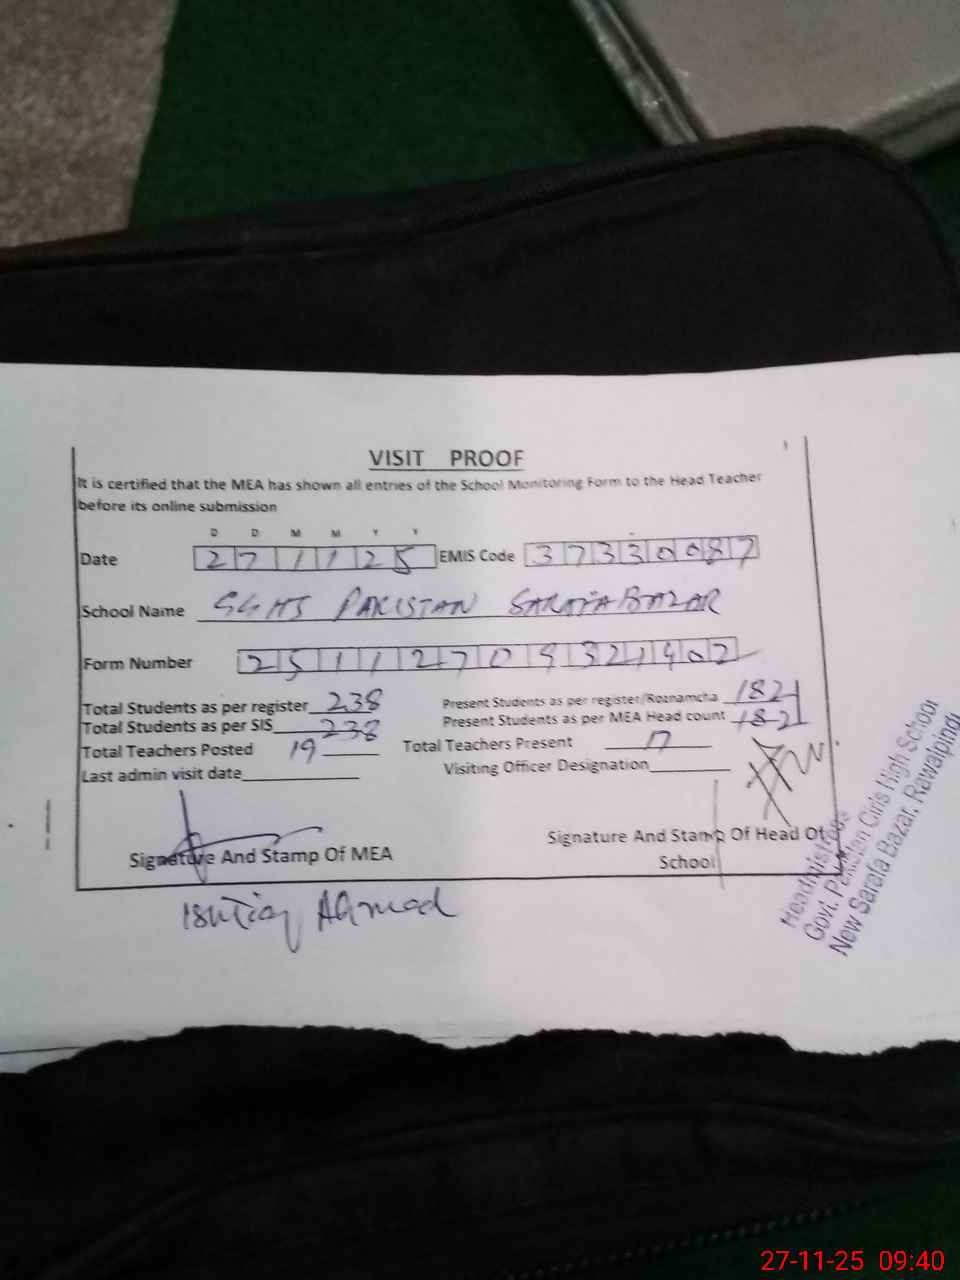 VISIT PROOF
It is certified that the MEA has shown all entries of the School Monitoring Form to the Head Teacher
before its online submission
D D M M Y Y
Date 271125 EMIS Code 37330087
School Name GGHS PAKISTAN SARAFA BAZAR
Form Number 2511270932
Total Students as per register 238 Present Students as per register/Roznamcha 182
Total Students as per SIS 238 Present Students as per MEA Head count 182
Total Teachers Posted 19 Total Teachers Present 17
Last admin visit date Visiting Officer Designation
Signature And Stamp Of MEA Signature And Stamp Of Head Of
School
Ishtiaq Ahmad
Headmistress
Govt. Pakistan Girls High School
New Sarafa Bazar, Rawalpindi
27-11-25 09:40